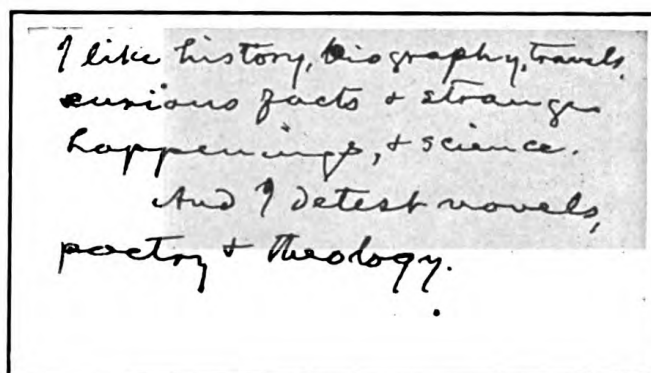 I like history, biography, travels,
curious facts & strange
happenings, & science.
And I detest novels,
poetry & theology.